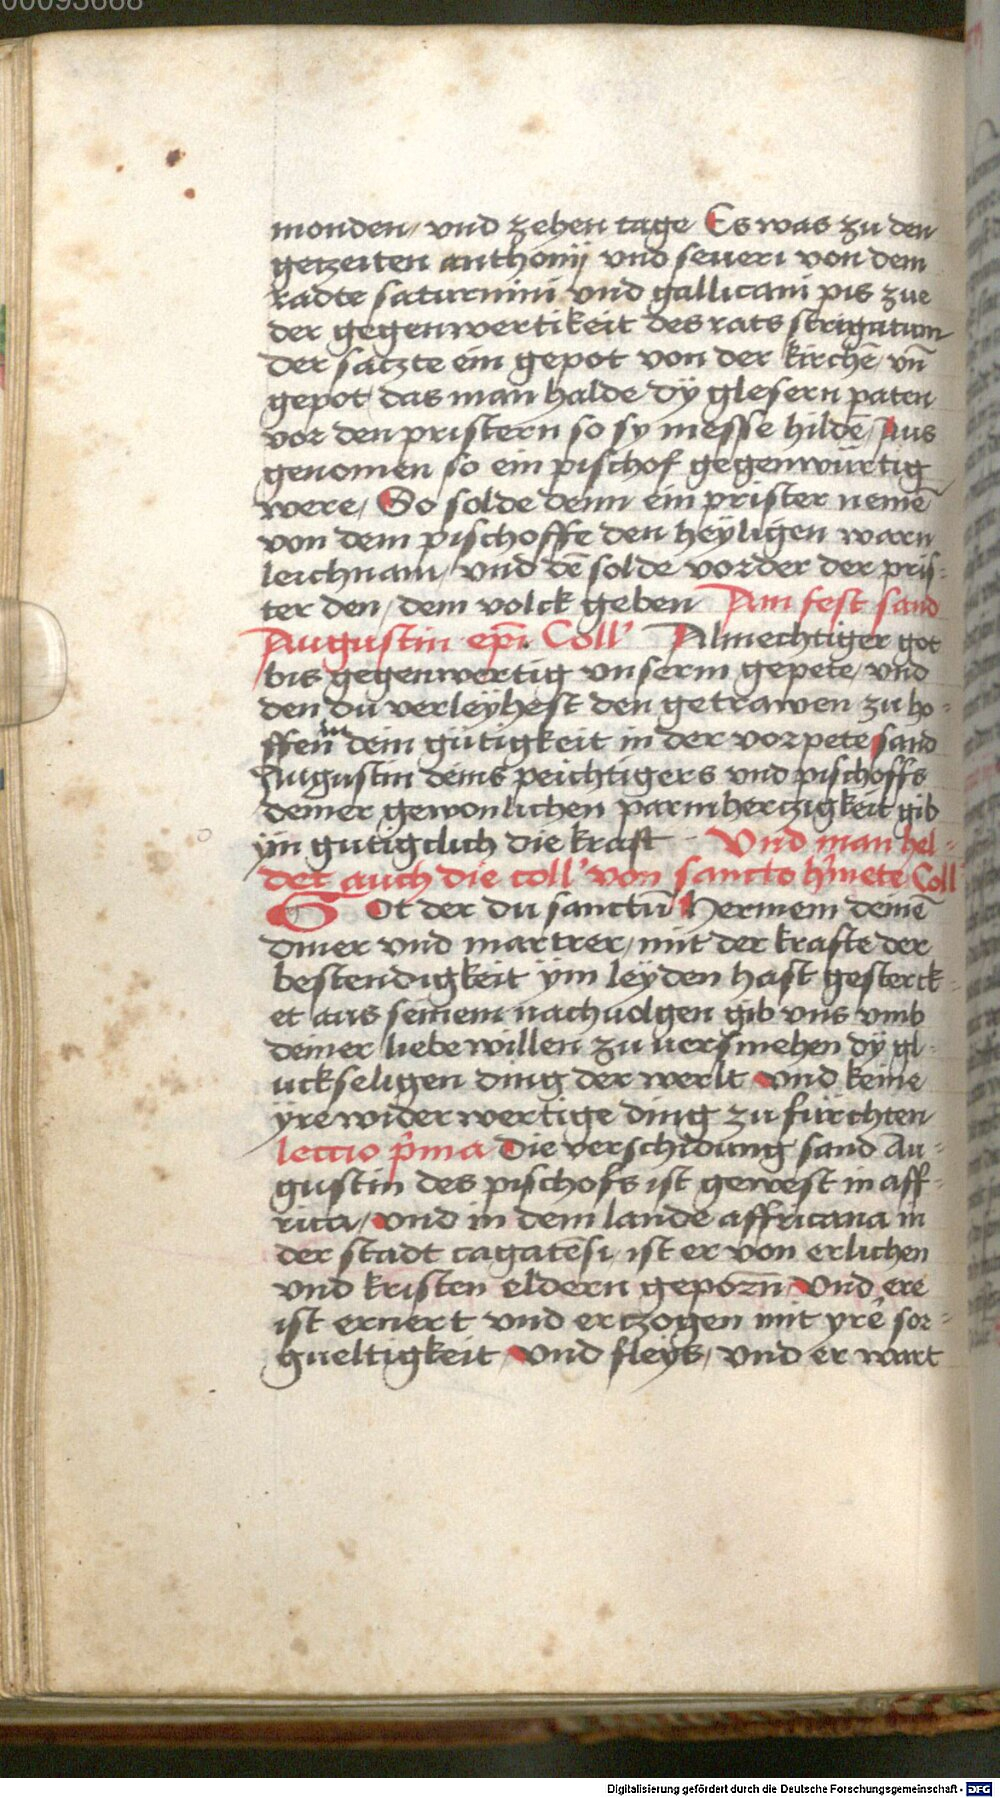 00093668
monden, vnd zehen tage Es was zu den
getzeiten anthonij vnd seueri von dem
radte saturnini vnd gallicani pis zue
der gegenwertikeit des rats strigatum
der satzte ein gepot von der kirchē, vn̄
gepot, das man halde dÿ glesern paten
vor den pristern so sy messe hildē, Aus
genomen so ein pischof gegenwürtig
were, So solde denn ein prister nemē
von dem pischoffe den heÿligen warn
leichnam, vnd dē solde vorder der pris-
ter den, dem volck geben Am fest sand
Augustin ep̄i. Coll' Almechtiger got
bis gegenwertig vnserm gepete, vnd
den du verleÿhest den getrawen zu ho-
ffen in dein gütigkeit in der vorpete sand
Augustin deins peichtigers vnd pischoffs
deiner gewonlichen parmhertzigkeit gib
ÿm gutigclich die kraft Vnd man hel-
det auch die coll' von sancto h'mete Coll
Got der du sanctū Hermem deinē
diner vnd martrer, mit der krafte der
bestendigkeit ÿm leÿden hast gesterck-
et aus seinem nachuolgen gib vns vmb
deiner liebe willen zu uersmehen dÿ gl-
uckseligen ding der werlt vnd keine
ÿre wider wertige ding zu fürchten
lectio p'ma Die verschidung sand Au-
gustin des pischofs ist gewest in aff-
rica, vnd in dem lande affricana in
der stadt cagatēsi, ist er von erlichen
vnd kristen eldern geporn̄ Vnd ere
ist ernert vnd ertzogen mit yrē sor-
gueltigkeit, vnd fleÿs, vnd er wart
Digitalisierung gefördert durch die Deutsche Forschungsgemeinschaft - DFG